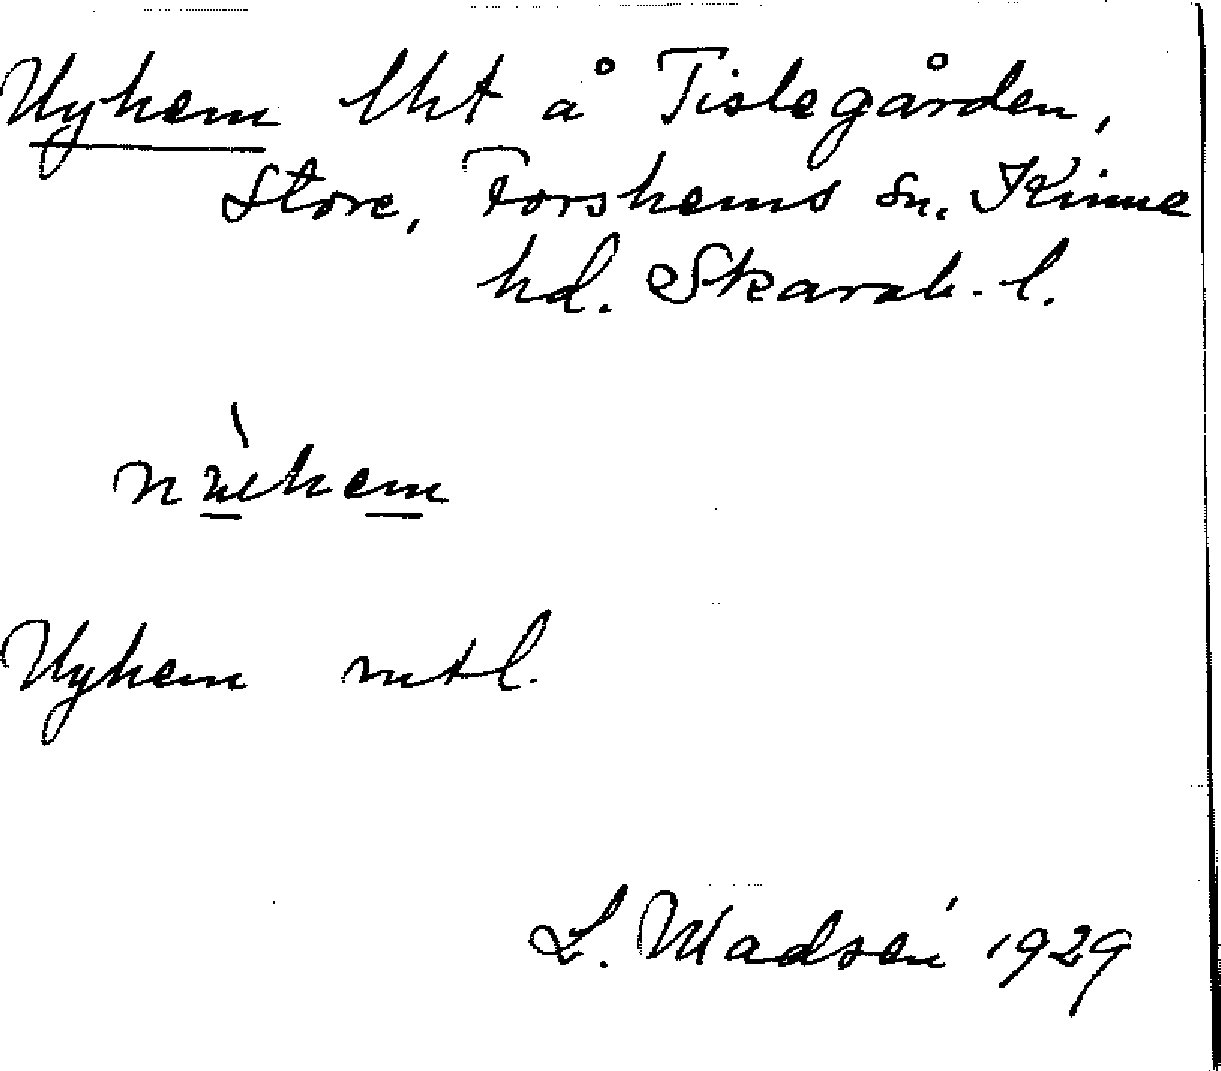 Nyhem lht å Tislegården,
Store, Forshems sn. Kinne
hd. Skarab. l.
Nyhem mtl.
L. Madsén 1929